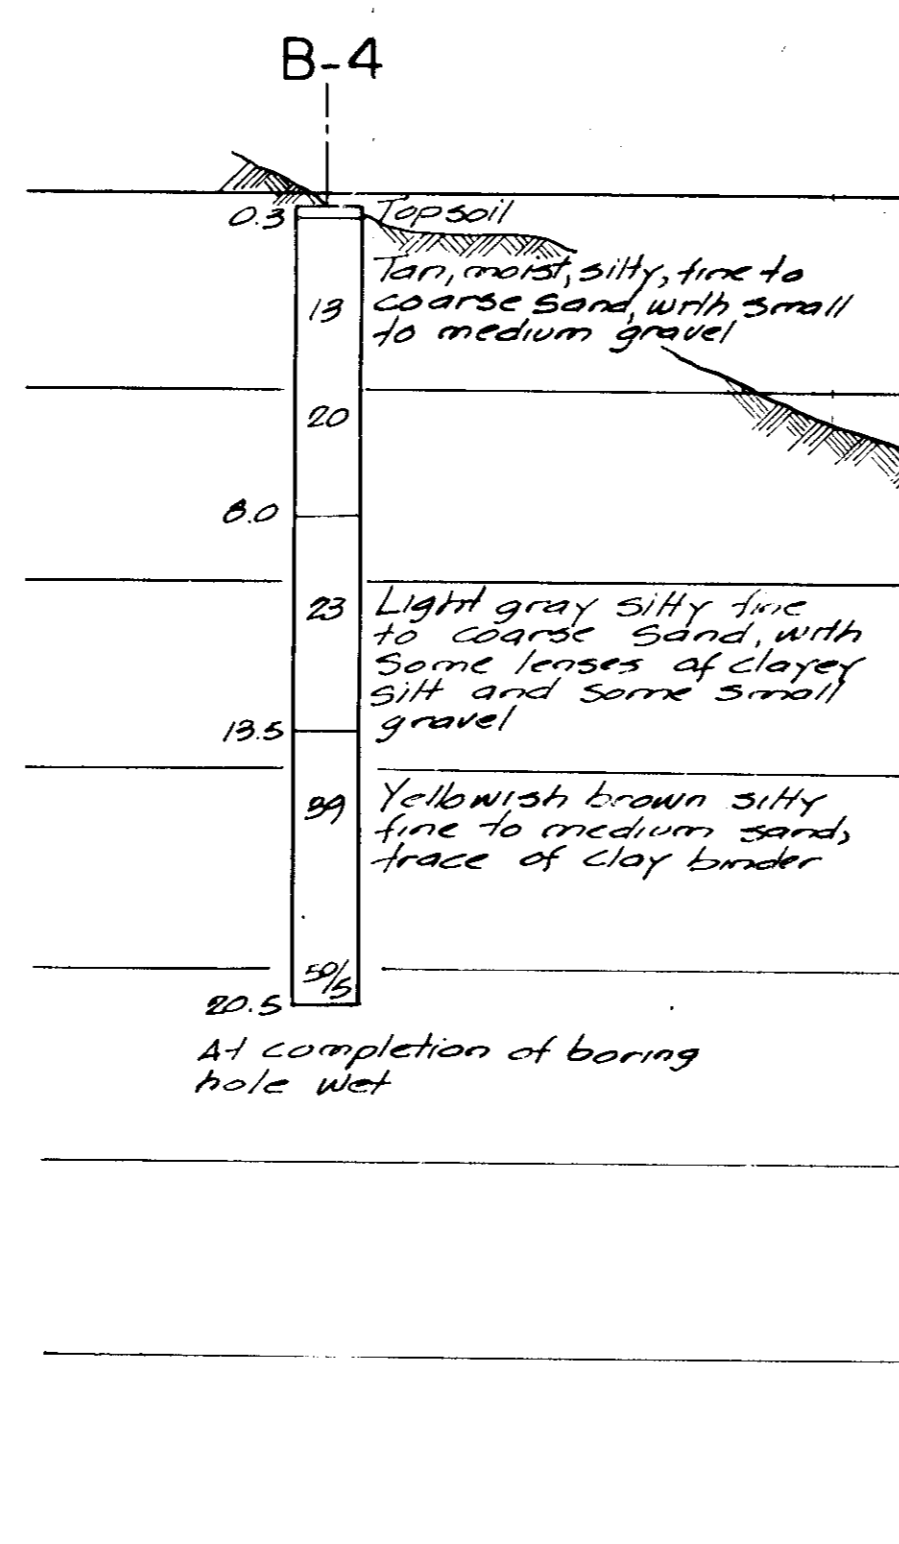 B-4
0.3
Topsoil
Tan, moist, silty, fine to
coarse sand, with small
to medium gravel
13
20
8.0
23
Light gray silty fine
to coarse sand, with
some lenses of clayey
silt and some small
gravel
13.5
39
Yellowish brown silty
fine to medium sand,
trace of clay binder
50/5
20.5
At completion of boring
hole wet